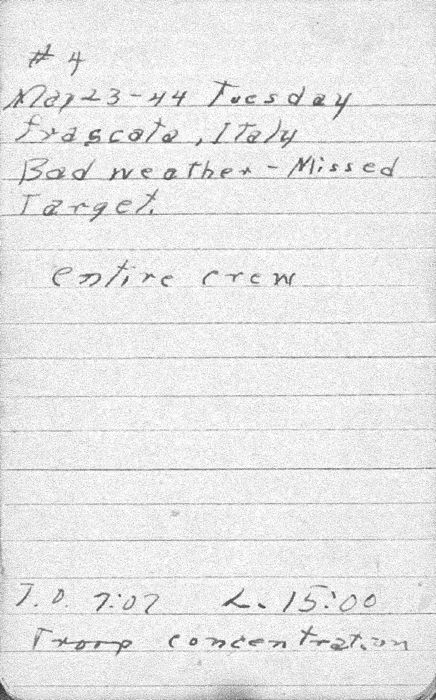 # 4
May-23-44 Tuesday
Frascata, Italy
Bad weather - Missed
Target.
entire crew
T.O. 7:07 L. 15:00
Troop concentration